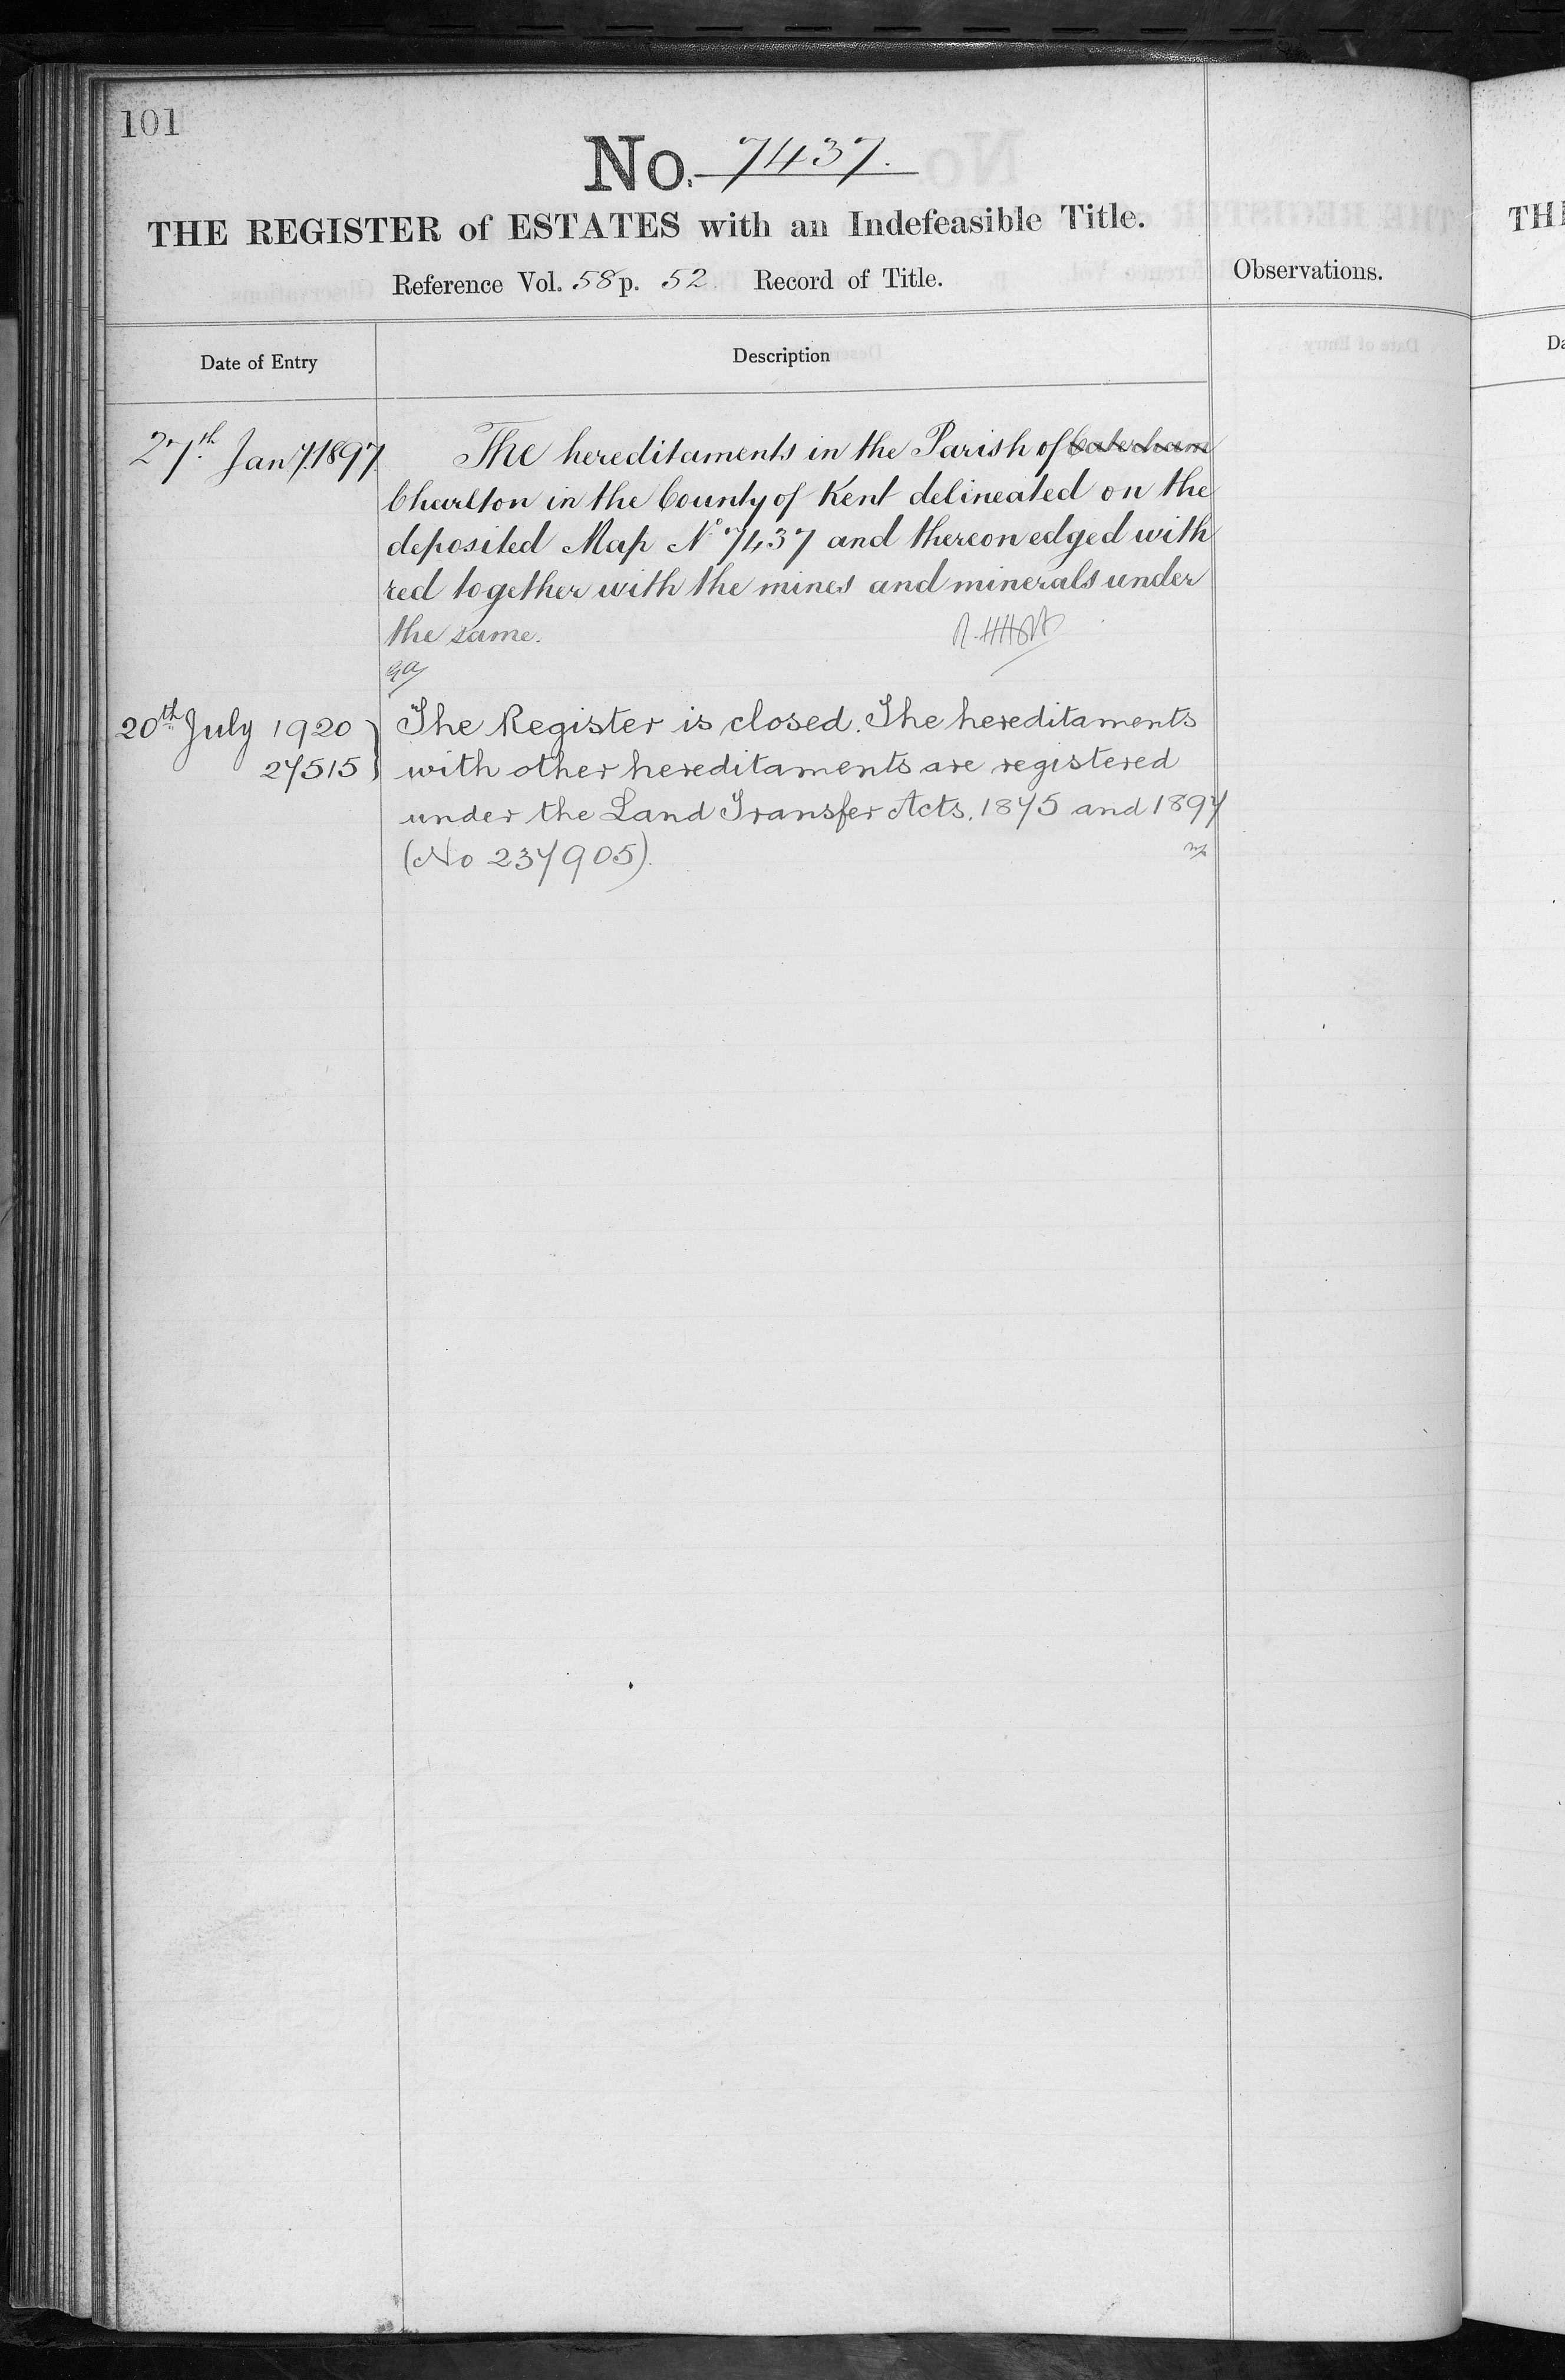 101
No. 7437.
THE REGISTER of ESTATES with an Indefeasible Title.
Reference Vol. 58 p. 52. Record of Title.
Observations.
Date of Entry
Description
27th Jany 1897
The hereditaments in the Parish of Caterham
Charlton in the County of Kent delineated on the
deposited Map No 7437 and thereon edged with
red together with the mines and minerals under
the same.
20th July 1920
27515
The Register is closed. The hereditaments
with other hereditaments are registered
under the Land Transfer Acts. 1875 and 1897
(No 237905).
TH
Da